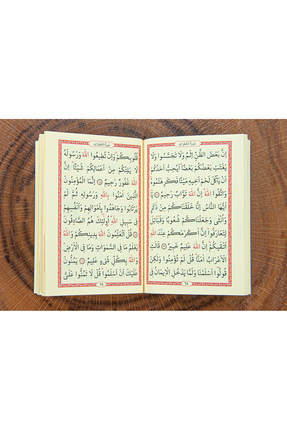 سُورَةُ الْحُجُرَاتِ
اِنَّ بَعْضَ الظَّنِّ اِثْمٌ وَلَا تَجَسَّسُوا وَلَا
يَغْتَبْ بَعْضُكُمْ بَعْضًا اَيُحِبُّ اَحَدُكُمْ
اَنْ يَأْكُلَ لَحْمَ اَخِيهِ مَيْتًا فَكَرِهْتُمُوهُ
وَاتَّقُوا اللّٰهَ اِنَّ اللّٰهَ تَوَّابٌ رَحِيمٌ يَا
اَيُّهَا النَّاسُ اِنَّا خَلَقْنَاكُمْ مِنْ ذَكَرٍ
وَاُنْثٰى وَجَعَلْنَاكُمْ شُعُوبًا وَقَبَائِلَ
لِتَعَارَفُوا اِنَّ اَكْرَمَكُمْ عِنْدَ اللّٰهِ
اَتْقٰيكُمْ اِنَّ اللّٰهَ عَلِيمٌ خَبِيرٌ قَالَتِ
الْاَعْرَابُ اٰمَنَّا قُلْ لَمْ تُؤْمِنُوا وَلٰكِنْ
قُولُوا اَسْلَمْنَا وَلَمَّا يَدْخُلِ الْاِيمَانُ فِي
سُورَةُ الْحُجُرَاتِ
قُلُوبِكُمْ وَاِنْ تُطِيعُوا اللّٰهَ وَرَسُولَهُ
لَا يَلِتْكُمْ مِنْ اَعْمَالِكُمْ شَيْئًا اِنَّ
اللّٰهَ غَفُورٌ رَحِيمٌ اِنَّمَا الْمُؤْمِنُونَ
الَّذِينَ اٰمَنُوا بِاللّٰهِ وَرَسُولِهِ ثُمَّ لَمْ
يَرْتَابُوا وَجَاهَدُوا بِاَمْوَالِهِمْ وَاَنْفُسِهِمْ
فِي سَبِيلِ اللّٰهِ اُولٰئِكَ هُمُ الصَّادِقُونَ
قُلْ اَتُعَلِّمُونَ اللّٰهَ بِدِينِكُمْ وَاللّٰهُ
يَعْلَمُ مَا فِي السَّمٰوَاتِ وَمَا فِي الْاَرْضِ
وَاللّٰهُ بِكُلِّ شَيْءٍ عَلِيمٌ يَمُنُّونَ
عَلَيْكَ اَنْ اَسْلَمُوا قُلْ لَا تَمُنُّوا عَلَيَّ